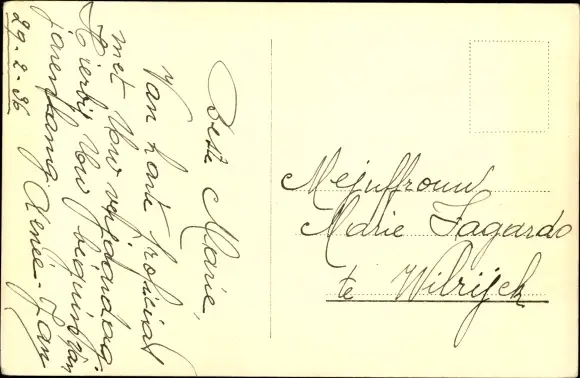 Beste Marie,
Van harte proficiat
met Uw verjaardag.
Hierbij Uw
jarenlang Renée-Jan
29-2-36
Mejuffrouw
Marie Fagardo
te Wilrijck